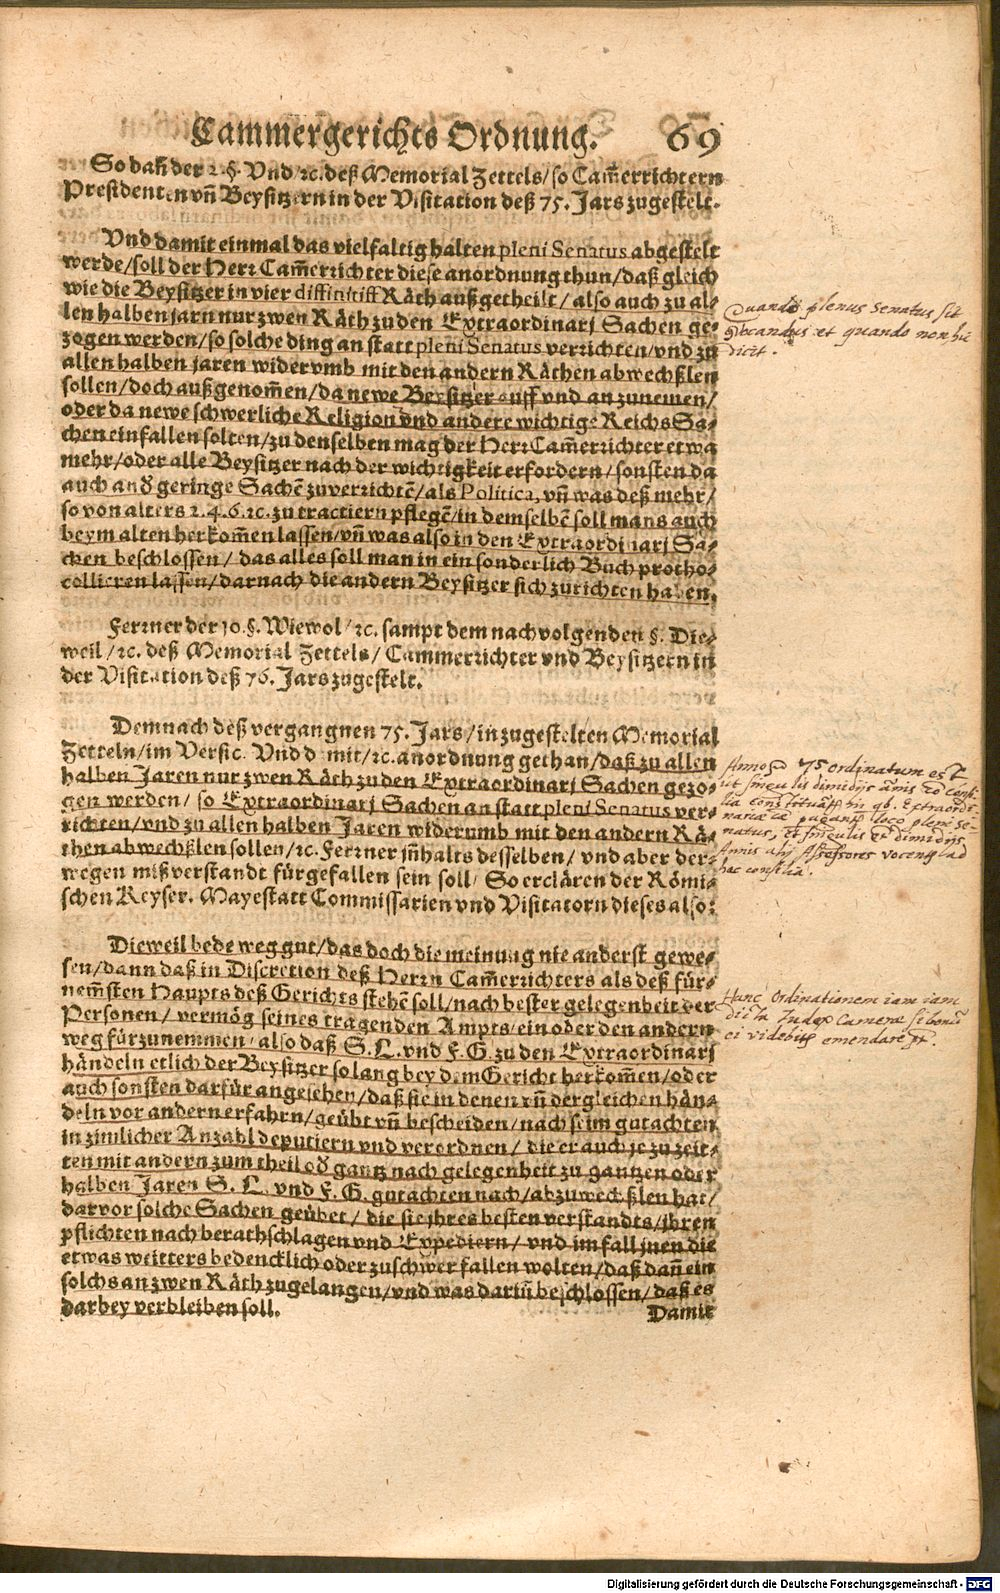 Cammergerichts Ordnung. 69
So dañ der 2. §. Vnd / ꝛc. deß Memorial Zettels / so Cam̃errichtern
Presidenten vñ Beysitzern in der Visitation deß 75. Jars zugestelt.
Vnd damit einmal das vielfaltig halten pleni Senatus abgestelt
werde / soll der Herr Cam̃errichter diese anordnung thun / daß gleich
wie die Beysitzer in vier diffinitiff Räth außgetheilt / also auch zu al⸗
len halben jarn nur zwen Räth zu den Extraordinarj Sachen ge⸗
zogen werden / so solche ding an statt pleni Senatus verrichten / vnd zu
allen halben jaren widerumb mit den andern Räthen abwechßlen
sollen / doch außgenom̃en / da newe Beysitzer auff vnd anzunemen /
oder da newe schwerliche Religion vnd andere wichtige Reichs Sa⸗
chen einfallen solten / zu denselben mag der Herr Cam̃errichter etwa
mehr / oder alle Beysitzer nach der wichtigkeit erfordern / sonsten da
auch and̃ geringe Sachẽ zuverrichtẽ / als Politica, vñ was deß mehr /
so von alters 2. 4. 6. ꝛc. zu tractiern pflegẽ / in demselbẽ soll mans auch
beym alten herkom̃en lassen / vñ was also in den Extraordinarj Sa⸗
chen beschlossen / das alles soll man in ein sonderlich Buch protho⸗
collieren lassen / darnach die andern Beysitzer sich zurichten haben.
Ferrner der 10. §. Wiewol / ꝛc. sampt dem nachvolgenden §. Die⸗
weil / ꝛc. deß Memorial Zettels / Cammerrichter vnd Beysitzern in
der Visitation deß 76. Jars zugestelt.
Demnach deß vergangnen 75. Jars / in zugestelten Memorial
Zetteln / im Versic. Vnd damit / ꝛc. anordnung gethan / daß zu allen
halben Jaren nur zwen Räth zu den Extraordinarj Sachen gezo⸗
gen werden / so Extraordinarj Sachen an statt pleni Senatus ver⸗
richten / vnd zu allen halben Jaren widerumb mit den andern Rä⸗
then abwechßlen sollen / ꝛc. Ferrner jnhalts desselben / vnd aber der⸗
wegen mißverstandt fürgefallen sein soll / So erclären der Römi⸗
schen Keyser. Mayestatt Commissarien vnd Visitatorn dieses also:
Dieweil bede weg gut / das doch die meinung nie anderst gewe⸗
sen / dann daß in Discretion deß Herrn Cam̃errichters als deß für⸗
nem̃sten Haupts deß Gerichts stehẽ soll / nach bester gelegenheit der
Personen / vermög seines tragenden Ampts / ein oder den andern
weg fürzunemmen / also daß S. L. vnd F. G. zu den Extraordinarj
händeln etlich der Beysitzer so lang bey dem Gericht herkom̃en / oder
auch sonsten darfür angesehen / daß sie in denen vñ dergleichen hän⸗
deln vor andern erfahrn / geübt vñ bescheiden / nach seim gutachten
in zimlicher Anzahl deputiern vnd verordnen / die er auch je zu zeit⸗
ten mit andern zum theil od̃ gantz nach gelegenheit zu gantzen oder
halben Jaren S. L. vnd F. G. gutachten nach / abzuwechßlen hat /
darvor solche Sachen geübet / die sie jhres besten verstandts / jhren
pflichten nach berathschlagen vnd Expediern / vnd im fall jnen die
etwas weitters bedencklich oder zuschwer fallen wolten / daß dañ ein
solchs an zwen Räth zugelangen / vnd was darüb̃ beschlossen / daß es
darbey verbleiben soll. Damit
Quando plenus Senatus sit
et quando non
Anno 75 ordinatum est
Extraordi-
loco pleni se-
natus, et singulis
Annis alij Assessores ad
hac consilia.
Hanc Ordinationem iam iam
dictã Judex Camerae si bonũ
ei videbit emendare pt.
Digitalisierung gefördert durch die Deutsche Forschungsgemeinschaft - DFG